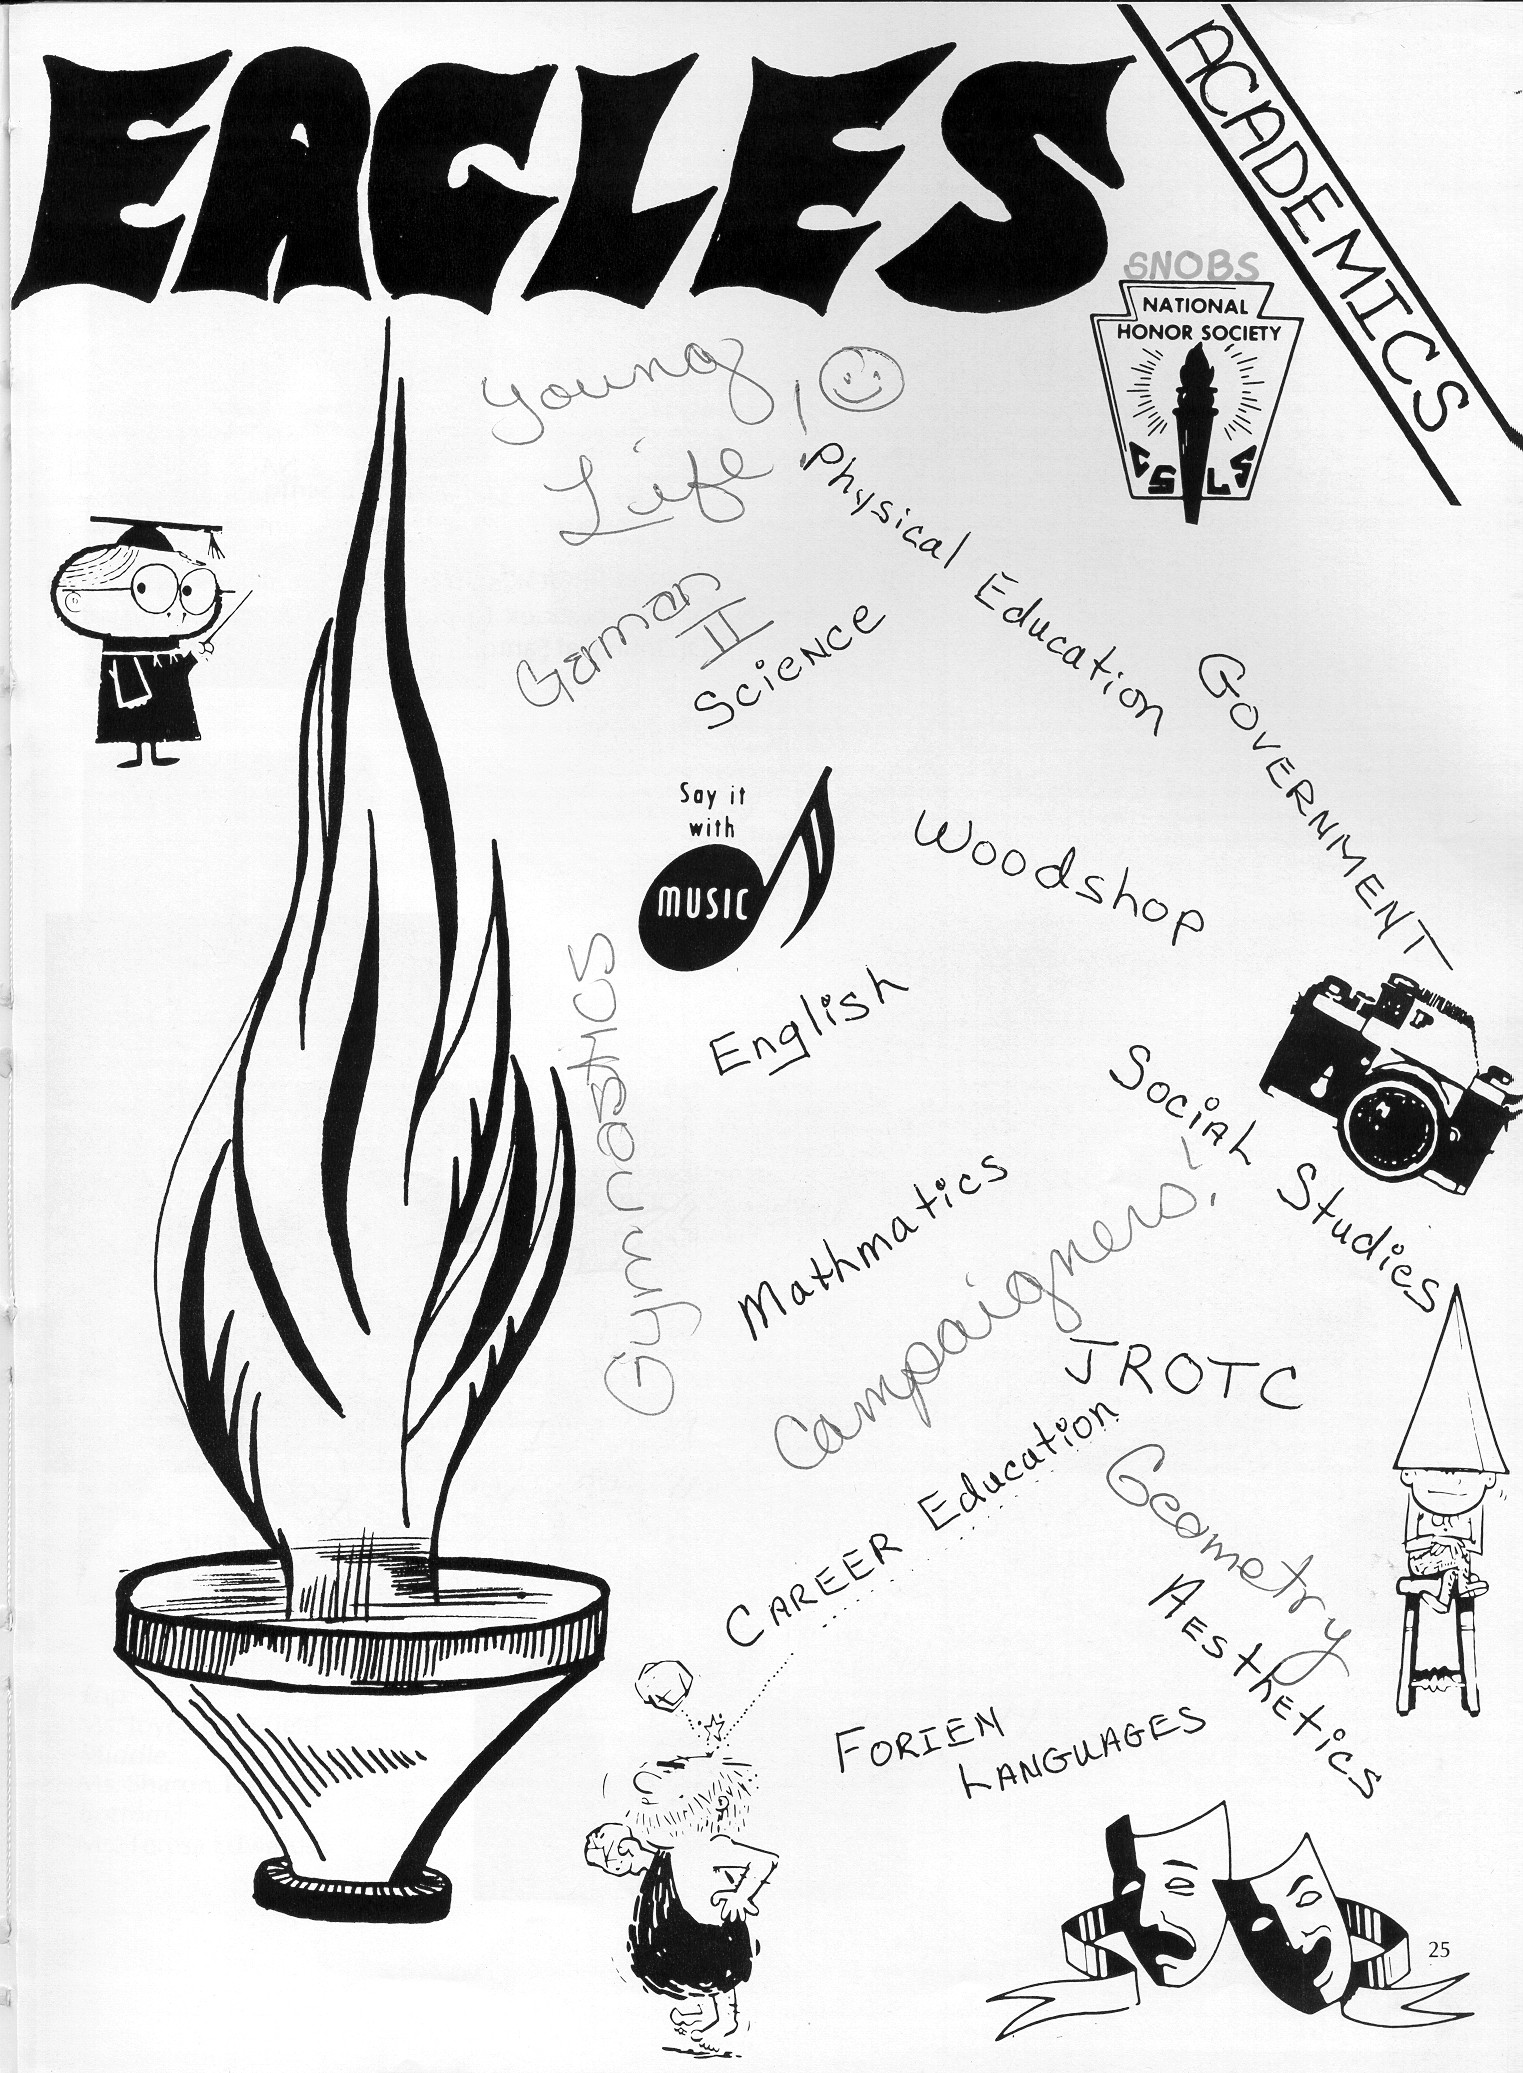 EAGLES
ACADEMICS
SNOBS
NATIONAL
HONOR SOCIETY
CSLS
Young
Life!
Physical Education
German
II
Science
GOVERNMENT
Say it
with
MUSIC
Woodshop
Gymnastics
English
Social Studies
Mathmatics
Campaigners!
JROTC
CAREER Education
Geometry
Aesthetics
FORIEN
LANGUAGES
25